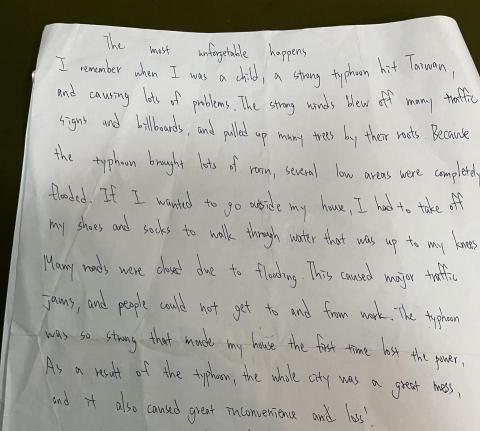 The most unforgetable happens
I remember when I was a child, a strong typhoon hit Taiwan,
and causing lots of problems. The strong winds blew off many traffic
signs and billboards, and pulled up many trees by their roots Because
the typhoon brought lots of rain, several low areas were completely
flooded. If I wanted to go outside my house, I had to take off
my shoes and socks to walk through water that was up to my knees
Many roads were closed due to flooding. This caused major traffic
jams, and people could not get to and from work. The typhoon
was so strong that made my house the first time lost the power.
As a result of the typhoon, the whole city was a great mess,
and it also caused great inconvenience and loss!